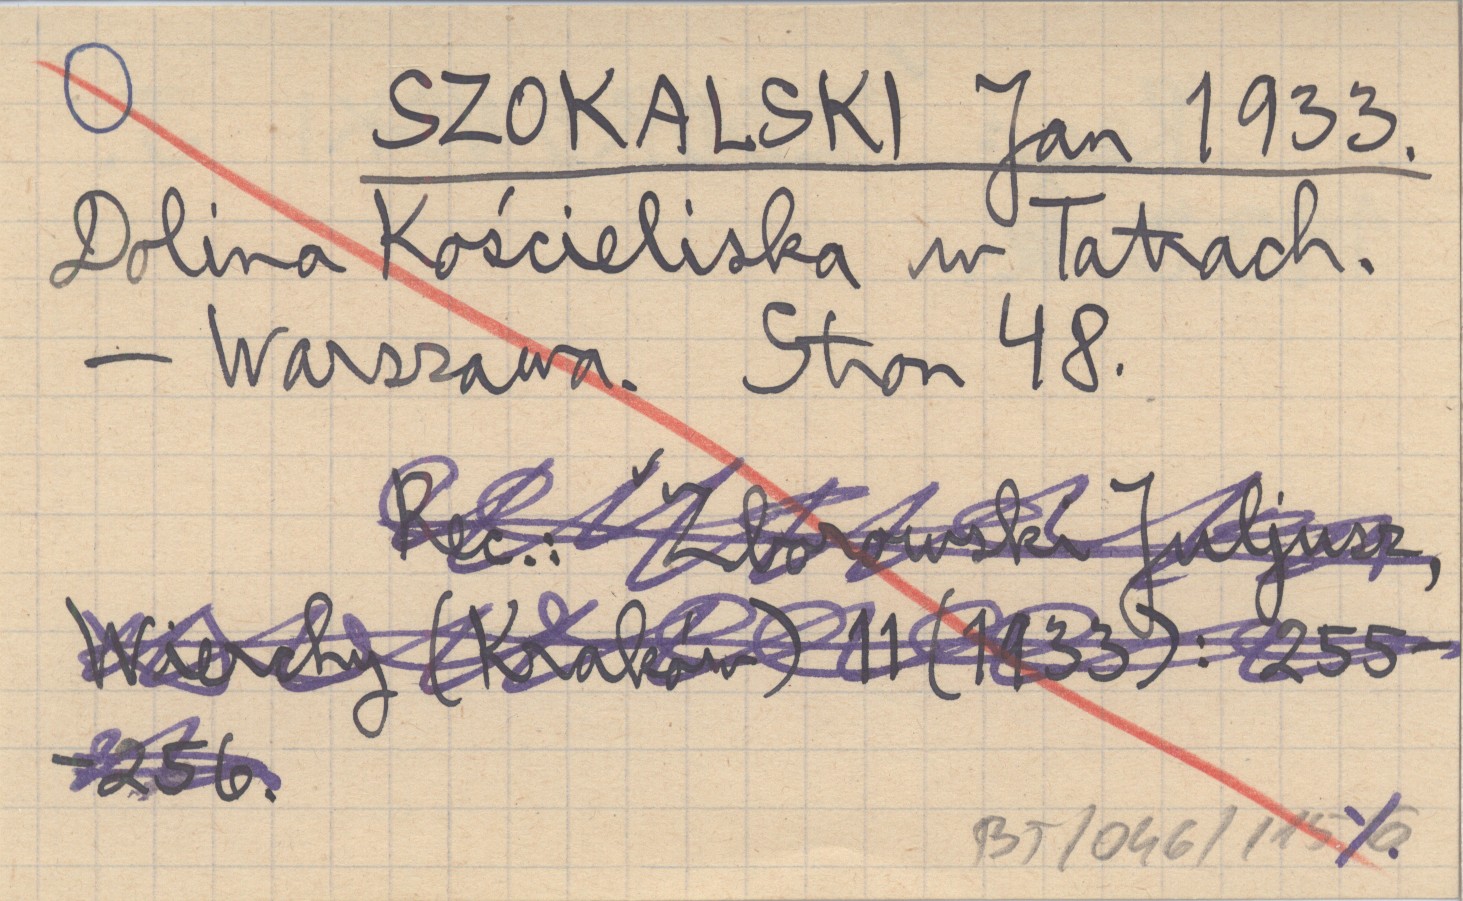 SZOKALSKI Jan 1933.
Dolina Kościeliska w Tatrach.
— Warszawa. Stron 48.
Rec.: Zborowski Juljusz,
Wierchy (Kraków) 11 (1933): 255-
-256.
BT/046/